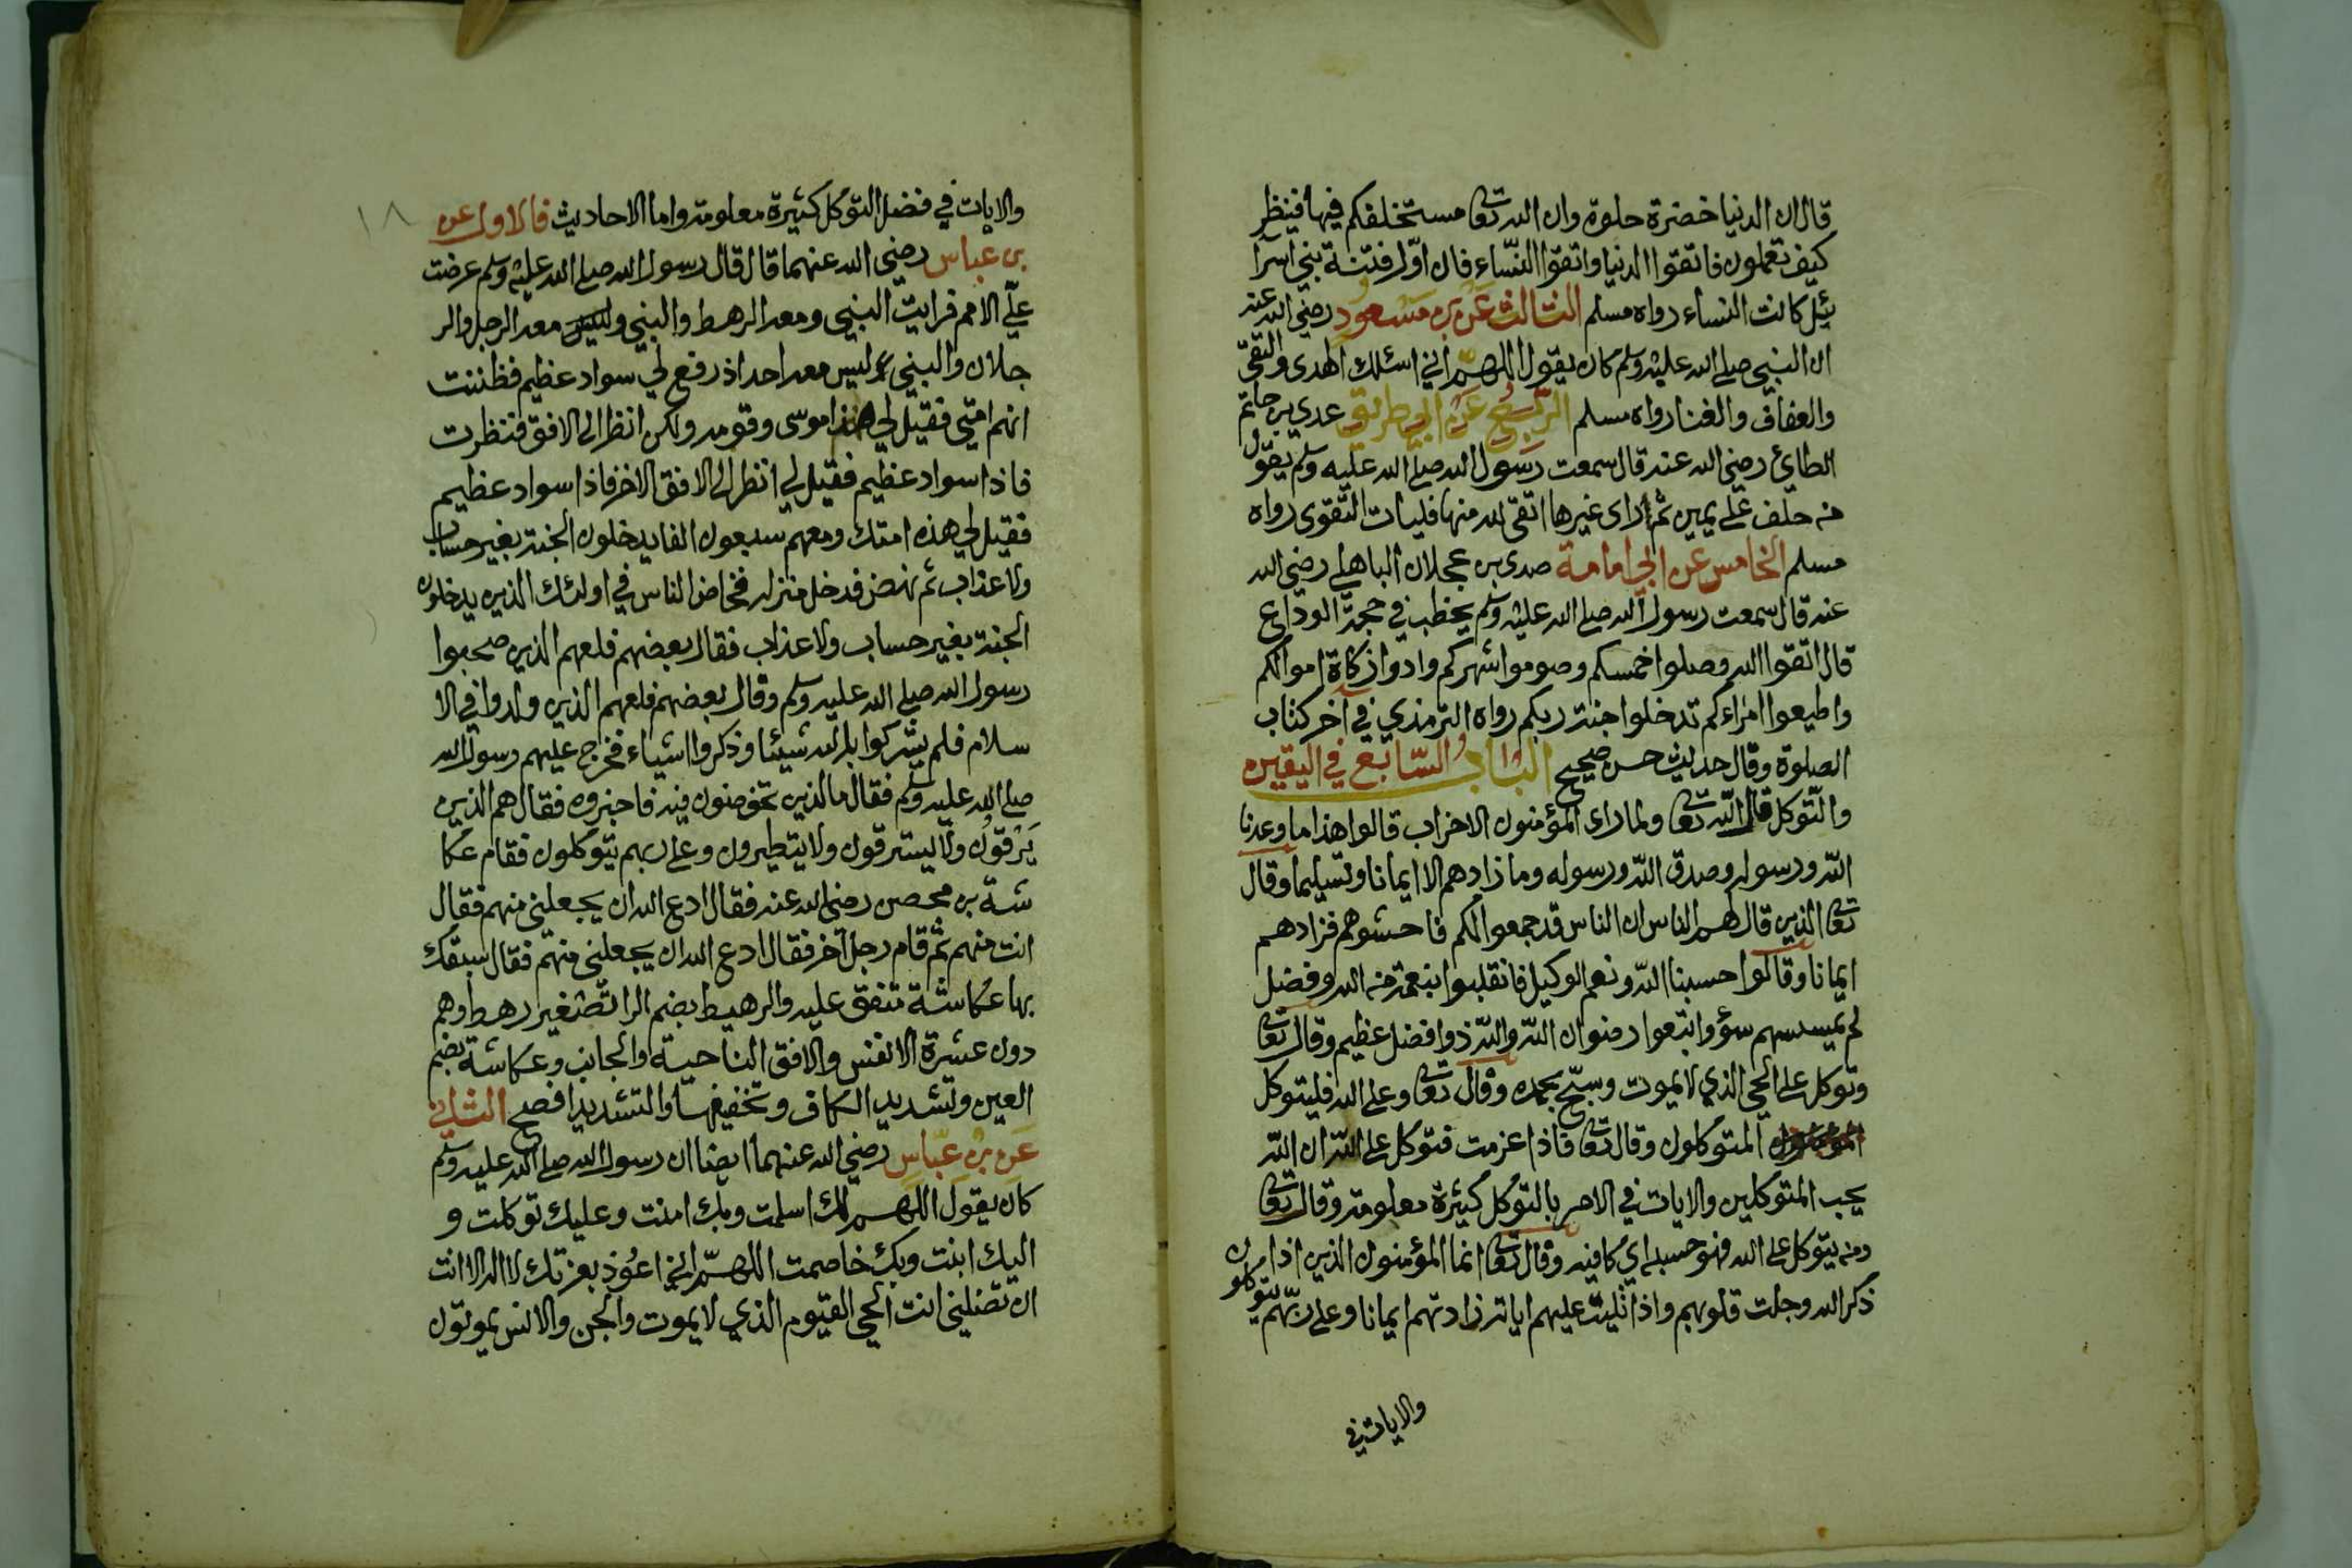 قال ان الدنيا خضرة حلوة وان الله تعا مستخلفكم فيها فينظر
كيف تعملون فاتقوا الدنيا واتقوا النساء فان اوّل فتنة بني اسرآ
ئل كانت النساء رواه مسلم الثالث عن بن مسعود رضي الله عنه
ان النبي صلى الله عليه وسلم كان يقول اللهمّ اني اسئلك الهدى والتقى
والعفاف والغنا رواه مسلم الرّابع عن ابي طريق عدي بن حاتم
الطائي رضي الله عنه قال سمعت رسول الله صلى الله عليه وسلم يقول
من حلف على يمين ثم راى غيرها اتقى لله منها فليات التقوى رواه
مسلم الخامس عن ابي امامة صدى بن عجلان الباهلي رضي الله
عنه قال سمعت رسول الله صلى الله عليه وسلم يخطب في حجة الوداع
قال اتقوا الله وصلوا خمسكم وصوموا شهركم وادوا زكاة اموالكم
واطيعوا امراءكم تدخلوا جنة ربكم رواه الترمذي في آخر كتاب
الصلوة وقال حديث حسن صحيح الباب السّابع في اليقين
والتّوكل قال اللّه تعا ولما راى المؤمنون الاحزاب قالوا هذا ما وعدنا
اللّه ورسوله وصدق اللّه ورسوله وما زادهم الا ايمانا وتسليما وقال
تعا الذين قال لهم الناس ان الناس قد جمعوا لكم فاخشوهم فزادهم
ايمانا وقالوا حسبنا اللّه ونعم الوكيل فانقلبوا بنعمة من الله وفضل
لم يمسسهم سؤ واتبعوا رضوان اللّه واللّه ذوا فضل عظيم وقال تعا
وتوكل على الحي الذي لا يموت وسبّح بحمده وقال تعا وعلى الله فليتوكل
المتوكلون وقال تعا فاذا عزمت فتوكل على اللّه ان اللّه
يحب المتوكلين والايات في الامر بالتوكل كثيرة معلومة وقال تعا
ومن يتوكل على الله فهو حسبه اي كافيه وقال تعا انما المؤمنون الذين اذا
ذكر الله وجلت قلوبهم واذا تليت عليهم اياته زادتهم ايمانا وعلى ربّهم يتوكلون
والايات في
١٨
والايات في فضل التوكل كثيرة معلومة واما الاحاديث فالاول عن
بن عباس رضي الله عنهما قال قال رسول الله صلى الله عليه وسلم عرضت
عليّ الامم فرايت النبي ومعه الرهط والنبي ومعه الرجل والر
جلان والنبي ليس معه احد اذ رفع لي سواد عظيم فظننت
انهم امتي فقيل لي هذا موسى وقومه ولكن انظر الى الافق فنظرت
فاذا سواد عظيم فقيل لي انظر الى الافق الاخر فاذا سواد عظيم
فقيل لي هذه امتك ومعهم سبعون الفا يدخلون الجنة بغير حساب
ولا عذاب ثم نهض فدخل منزله فخاض الناس في اولئك الذين يدخلون
الجنة بغير حساب ولا عذاب فقال بعضهم فلعهم الذين صحبوا
رسول الله صلى الله عليه وسلم وقال بعضهم فلعهم الذين ولدوا في الا
سلام فلم يشركوا بالله شيئا وذكروا اشياء فخرج عليهم رسول الله
صلى الله عليه وسلم فقال ما الذين تخوضون فيه فاخبروه فقال هم الذين
يَرْقون ولا يسترقون ولا يتطيرون وعلى ربهم يتوكلون فقام عكا
شة بن محصن رضي الله عنه فقال ادع الله ان يجعلني منهم فقال
انت منهم ثم قام رجل آخر فقال ادع الله ان يجعلني منهم فقال سبقك
بها عكاشة متفق عليه والرهيط بضم الرا تصغير رهط وهم
دون عشرة الانفس والافق الناحية والجانب وعكاشة بضم
العين وتشديد الكاف وتخفيفها والتشديد افصح الثاني
عَن بن عبّاس رضي الله عنهما ايضا ان رسول الله صلى الله عليه وسلم
كان يقول اللهم لك اسلمت وبك امنت وعليك توكلت و
اليك ابنت وبك خاصمت اللهمّ اني اعوذ بعزتك لا اله الا انت
ان تضلني انت الحي القيوم الذي لا يموت والجن والانس يموتون